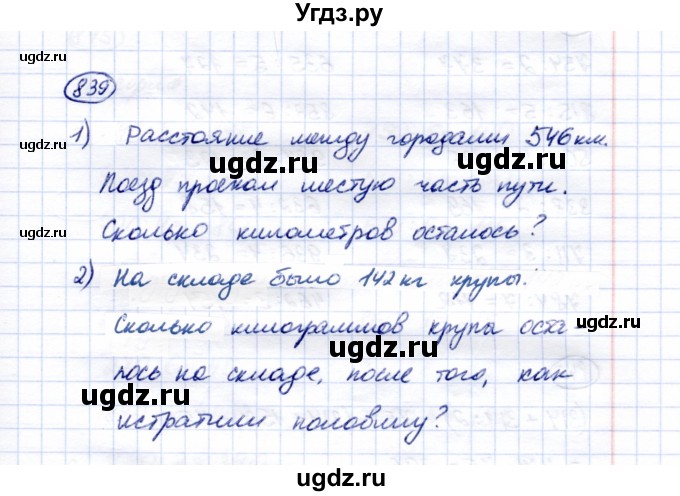 Угдз.ру
839
1) Расстояние между городами 546 км.
Поезд проехал шестую часть пути.
Сколько километров осталось?
2) На складе было 142 кг крупы.
Сколько килограммов крупы оста-
лось на складе, после того, как
истратили половину?
ugdz.ru
ugdz.ru
ugdz.ru
ugdz.ru
ugdz.ru
ugdz.ru
ugdz.ru
ugdz.ru
ugdz.ru
ugdz.ru
ugdz.ru
ugdz.ru
ugdz.ru